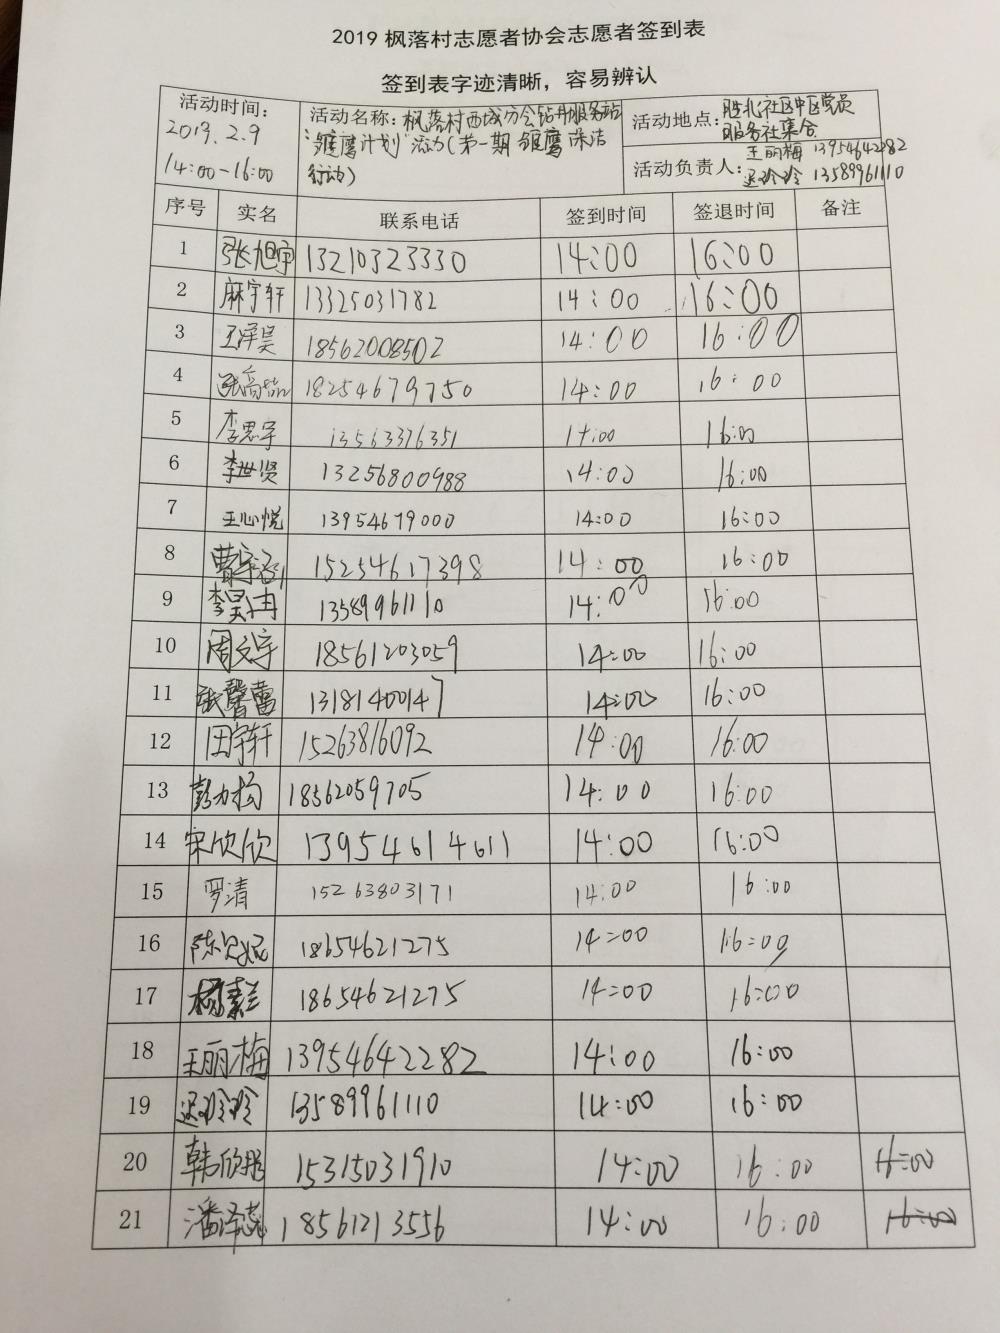 2019枫落村志愿者协会志愿者签到表
签到表字迹清晰，容易辨认
活动时间：
2019.2.9
14:00-16:00
活动名称：枫落村西城分会钻井服务站
"雏鹰计划"活动(第一期 雏鹰保洁
行动)
活动地点：胜北社区中区党员
服务社集合
活动负责人：王丽梅 13954642282
迟玲玲 13589961110
序号 实名 联系电话 签到时间 签退时间 备注
1 张旭宇 13210323330 14:00 16:00
2 麻宇轩 13325031782 14:00 16:00
3 王泽昊 18562008502 14:00 16:00
4 18254679750 14:00 16:00
5 李思宇 13563376351 14:00 16:00
6 李世贤 13256800988 14:00 16:00
7 王心悦 13954679000 14:00 16:00
8 15254617398 14:00 16:00
9 李昊冉 13589961110 14:00 16:00
10 周文宇 18561203059 14:00 16:00
11 张馨蕾 13181400147 14:00 16:00
12 田宇轩 15263816092 14:00 16:00
13 彭力杨 18562059705 14:00 16:00
14 宋欣欣 13954614611 14:00 16:00
15 罗清 15263803171 14:00 16:00
16 18654621275 14:00 16:00
17 杨素兰 18654621275 14:00 16:00
18 王丽梅 13954642282 14:00 16:00
19 迟玲玲 13589961110 14:00 16:00
20 韩欣彤 15315031910 14:00 16:00 16:00
21 潘泽蕊 18561213556 14:00 16:00 16:00